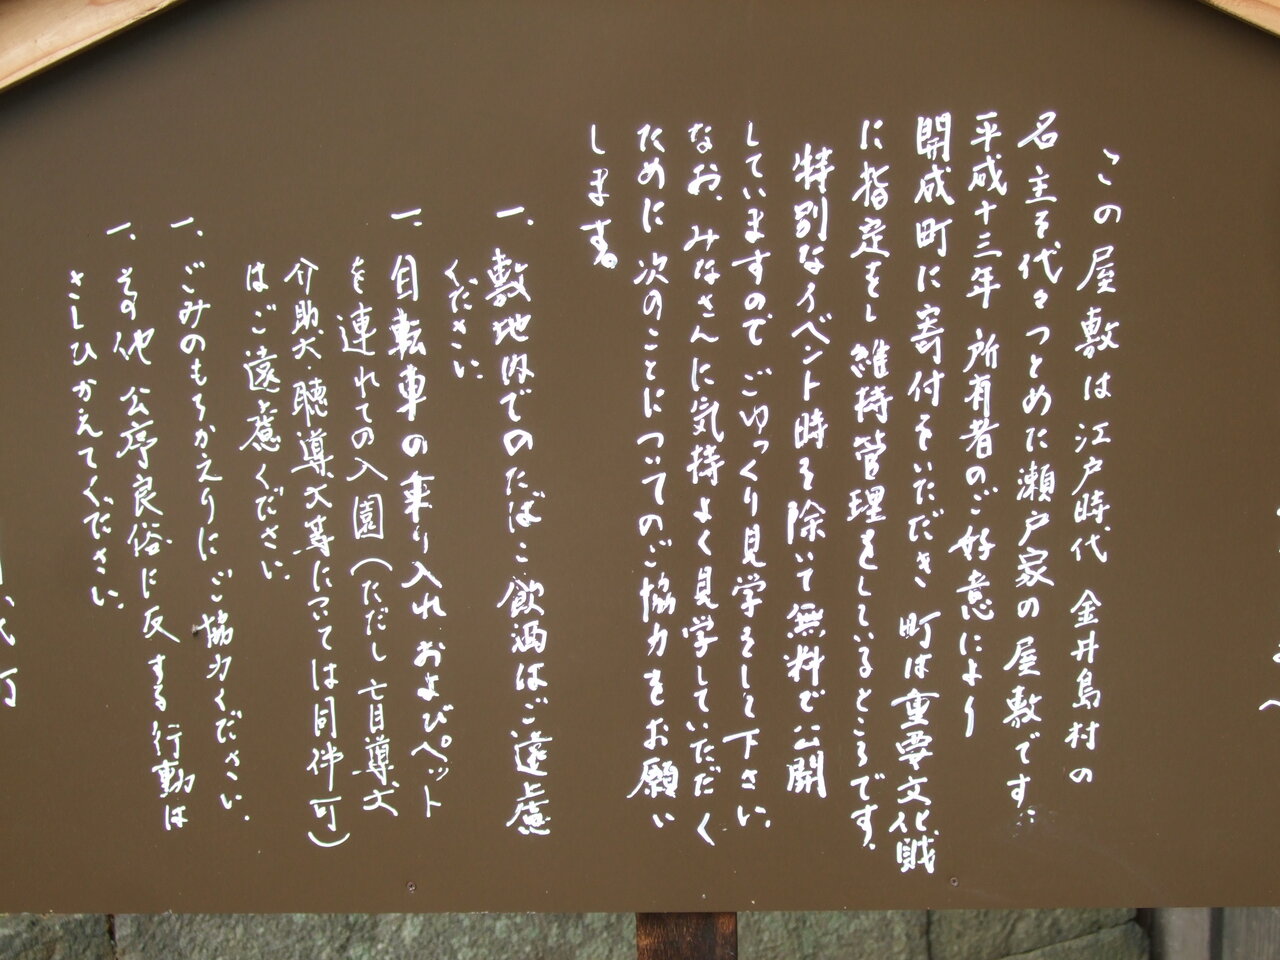 この屋敷は江戸時代 金井島村の
名主を代々つとめた瀬戸家の屋敷です。
平成十三年 所有者のご好意により
開成町に寄付をいただき 町は重要文化財
に指定をし維持管理をしているところです。
特別なイベント時を除いて無料で公開
していますので ごゆっくり見学をして下さい。
なお、みなさんに気持よく見学していただく
ために 次のことについてのご協力をお願い
します。
一、敷地内でのたばこ 飲酒はご遠慮
ください。
一、自転車の乗り入れ およびペット
を連れての入園(ただし盲目導犬
介助犬・聴導犬等については同伴可)
はご遠慮ください。
一、ごみのもちかえりにご協力ください。
一、その他 公序良俗に反する行動は
さしひかえてください。